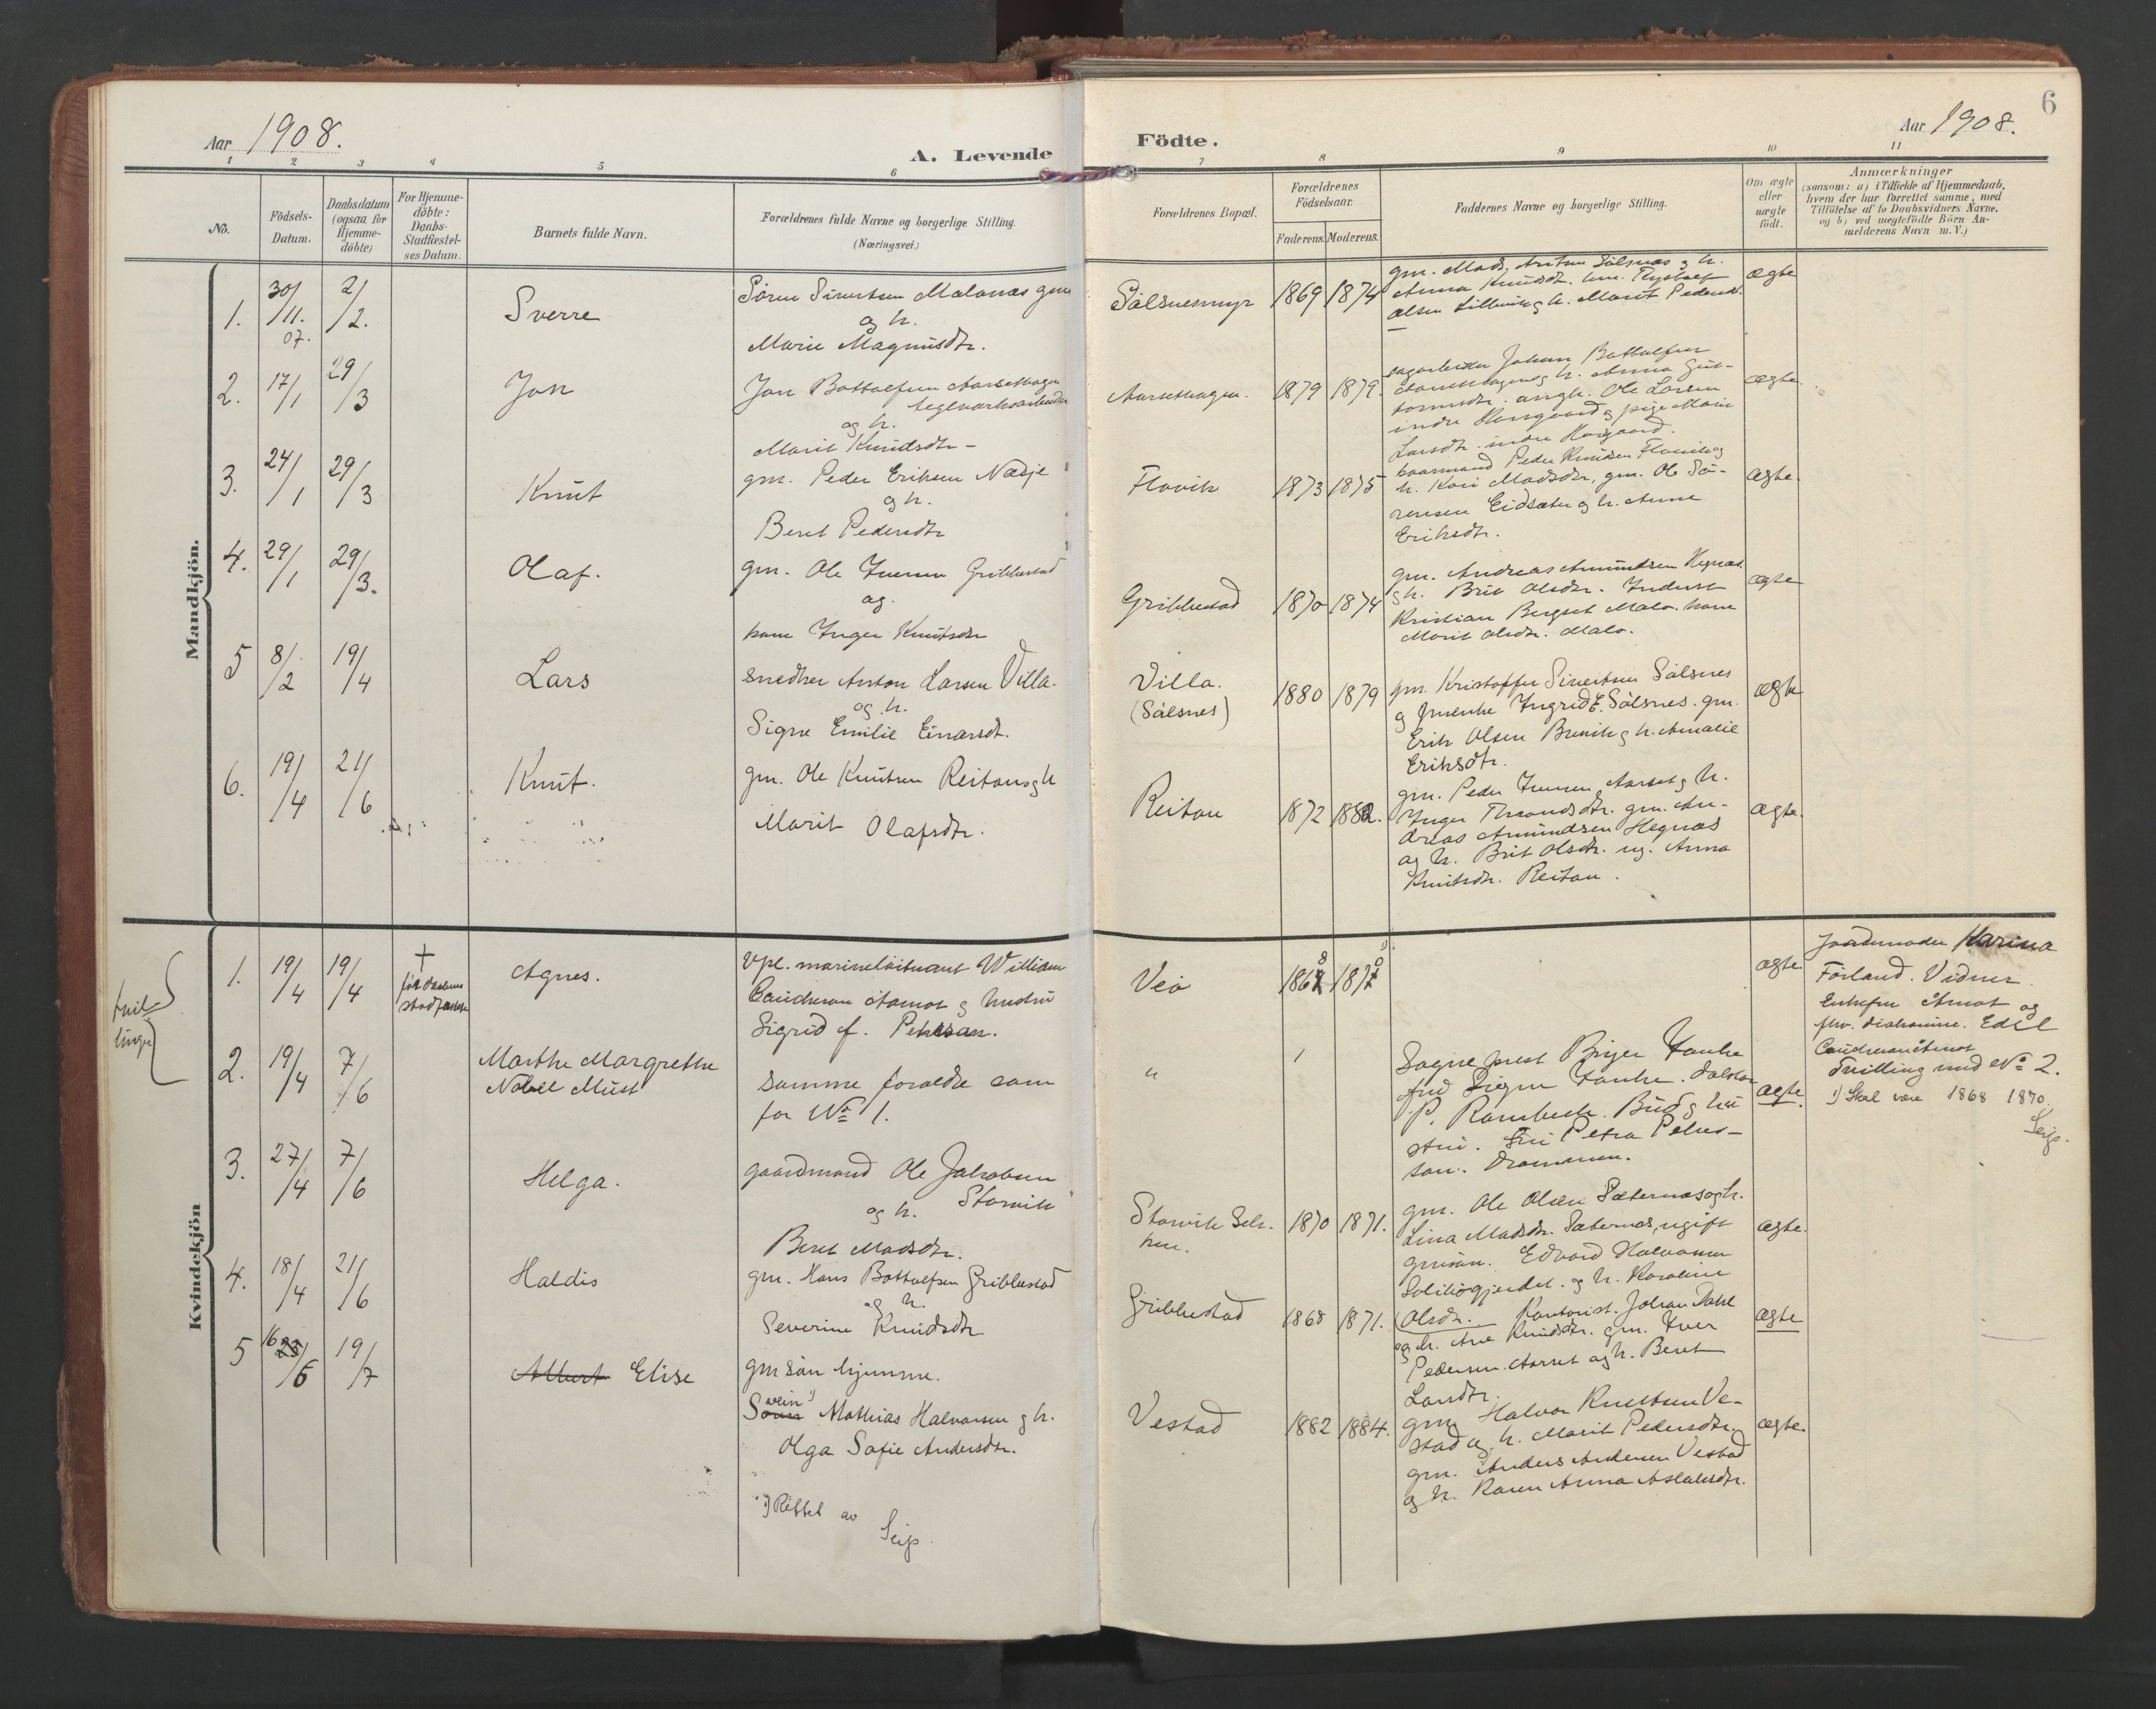 6
Aar 1908.
A. Levende
Födte.
Aar 1908.
1 2 3 4 5 6 7 8 9 10 11
No.
Födsels-
Datum.
Daabsdatum
(ogsaa for
Hjemme-
döbte)
For Hjemme-
döbte:
Daabs-
Stadfæstel-
ses Datum.
Barnets fulde Navn.
Forældrenes fulde Navne og borgerlige Stilling.
(Næringsvei.)
Forældrenes Bopæl.
Forældrenes
Födselsaar.
Faderens.
Moderens.
Faddernes Navne og borgerlige Stilling.
Om ægte
eller
uægte
födt.
Anmærkninger
(saasom: a) i Tilfælde af Hjemmedaab,
hvem der har forrettet samme, med
Tilföielse af to Daabsvidners Navne,
og b) ved uægtefödte Börn An-
melderens Navn m. V.)
Mandkjön.
1. 30/11. 07. 2/2. Sverre
Sören Sivertsen Malonæs gm
og h.
Marie Magnusdtr.
Sålsnesmyr 1869 1874
gm. Mads Antun Sålsnæs og h.
Anna Knudsdtr.
Olsen Lillevik og h. Marit Pedersd.
ægte
2. 17/1 29/3 Jon
Jon Bottolfsen Aarsethagen
teglverksarbeider
og h.
Marit Knudsdtr
Aarsethagen. 1879 1879.
sagarbeider Johan Bottolfsen
Aarsethagen og h. Anna Gut-
tormsdtr. ungk. Ole Larsen
indre Horsgaard og pige Marie
Larsdtr. indre Horsgaard.
ægte.
3. 24/1 29/3 Knut
gm. Peder Eriksen Næsje
og h.
Beret Pedersdtr
Flovik 1873 1875
kaarmand Peder Knudsen Flovik og
h. Kari Madsdtr, gm. Ole Sö-
rensen Eidsæter og h. Anne
Eriksdtr.
ægte.
4. 29/1 29/3. Olaf.
gm. Ole Iversen Gribbestad
og.
kone Inger Knutsdtr
Gribbestad 1870 1874
gm. Andreas Amundsen Hegnæs
og h. Brit Olsdtr. Inderst
Kristian Bergset Malo. kone
Marit Olsdtr. Malo.
ægte
5 8/2 19/4 Lars
snedker Anton Larsen Villa.
og h.
Signe Emilie Einarsdt.
Villa.
(Sålsnes)
1880 1879
gm. Kristoffer Sivertsen Sålsnes
og Ingrid E. Sålsnes. gm.
Erik Olsen Brevik og h. Amalie
Eriksdtr.
ægte
6. 19/4 21/6 Knut.
gm. Ole Knutsen Reitan og h
Marit Olafsdtr.
Reitan 1872 1882.
gm. Peder Iversen Aarset og h.
Inger Throndsdtr. gm. An-
dreas Amundsen Hegnæs
og h. Brit Olsdtr. ug. Anna
Knutsdtr. Reitan.
ægte.
Kvindekjön
tvil-
linger
1. 19/4 19/4
†
för daabens
stadfæstelse
Agnes.
Vpl. marinelöitnant William
Caudueran Åamot og hustru
Sigrid f. Pehrson.
Veö 1868 1870
ægte
Jordmoder Karina
Förland. Vidner
Enkefru Åmot og
fhv. diakonisse. Edel
Cauduerau Åmot
2. 19/4 7/6
Marthe Margrethe
Nobell Must
samme foreldre som
for No 1.
"
Sogneprest Birger Tanke
frue Signe Tanke.
P. Rambech. Bud og hu-
stru. Petra Pehrs-
son. Drammen.
ægte.
Tvilling med No 2.
1) Skal være 1868 1870.
Seip.
3. 27/4 7/6 Helga.
gaardmand Ole Jakobsen
Storvik
og h.
Beret Madsdtr.
Storvik Sek-
ken. 1870 1871.
gm. Ole Olsen Sæternæs og h.
Lina Madsdtr. Sæternæs, ugift
gmsön. Edvard Halvorsen
Solibögjerdet. og h. Karoline
Olsdtr.
ægte.
4. 18/4 21/6 Haldis
gm. Hans Bottolfsen Gribbestad
og h.
Severine Knudsdtr
Gribbestad 1868 1871.
Kontorist. Johan Dahl
og h. Ane Knudsdtr. gm. Iver
Pedersen Aarset og h. Beret
Larsdtr.
ægte
5 16 25/6 19/7 Albert Elise
gmsön hjemme.
Svein 1) Mathias Halvorsen og h.
Olga Sofie Andersdtr.
Vestad 1882 1884.
gm. Halvor Knutsen Ve-
stad og h. Marit Pedersdtr.
gm. Anders Andersen Vestad
og h. Karen Anna Aslaksdtr.
ægte.
1) Rettet av
Seip.